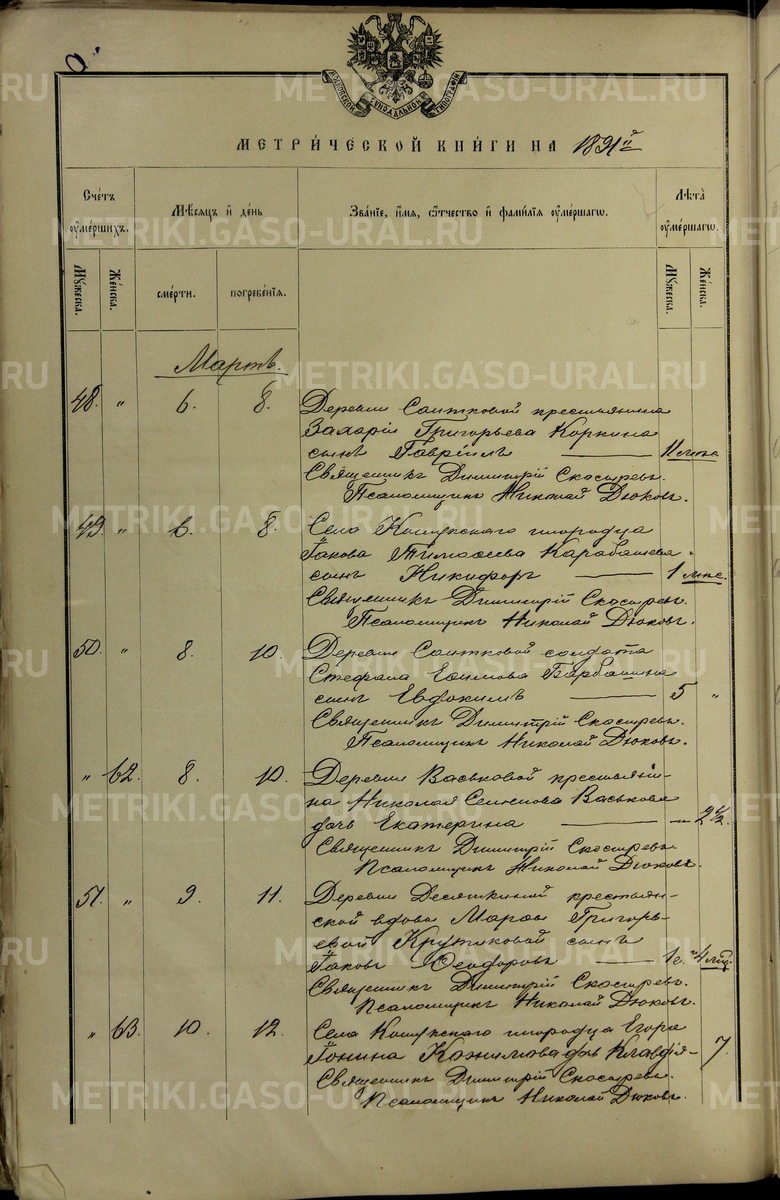 МОСКОВСКОЙ СѴНОДАЛЬНОЙ ТИПОГРАФІИ
МЕТРИ́ЧЕСКОЙ КНИ́ГИ НА 1891й
Сче́тъ ᲂу҆ме́ршихъ.
Мѣ́сяцъ и҆ де́нь
Зва́нїе, и҆́мя, ѻ҆́тчество и҆ фами́лїя ᲂу҆ме́ршагѡ.
Лѣта̀ ᲂу҆ме́ршагѡ.
Мꙋ́жеска.
Же́нска.
сме́рти.
погребе́нїя.
Мꙋ́жеска.
Же́нска.
Мартъ.
48. " 6. 8. Деревни Саитковой крестьянина
Захарія Григорьева Коркина
сынъ Гавріилъ — 11 мѣс.
Священникъ Димитрій Скосыревъ.
Псаломщикъ Николай Дюковъ.
49. " 6. 8. Села Кошукскаго инородца
Іакова Тимоѳеева Карабашева
сынъ Никифоръ — 1 мѣс.
Священникъ Димитрій Скосыревъ.
Псаломщикъ Николай Дюковъ.
50. " 8. 10. Деревни Саитковой солдата
Стефана Ефимова Барбашина
сынъ Евдокимъ — 5 "
Священникъ Димитрій Скосыревъ.
Псаломщикъ Николай Дюковъ.
" 62. 8. 10. Деревни Васьковой крестьяни-
на Николая Семенова Васькова
дочь Екатерина — " 2 1/2.
Священникъ Димитрій Скосыревъ
Псаломщикъ Николай Дюковъ.
51. " 9. 11. Деревни Десяткиной крестьян-
ской вдовы Марѳы Григорь-
евой Крутиковой сынъ
Іаковъ Ѳеодоровъ — 1 г. 4 мѣс.
Священникъ Димитрій Скосыревъ.
Псаломщикъ Николай Дюковъ.
" 63. 10. 12. Села Кошукскаго инородца Егора
Іонина дочь Клавдія — 7.
Священникъ Димитрій Скосыревъ.
Псаломщикъ Николай Дюковъ.
METRIKI.GASO-URAL.RU